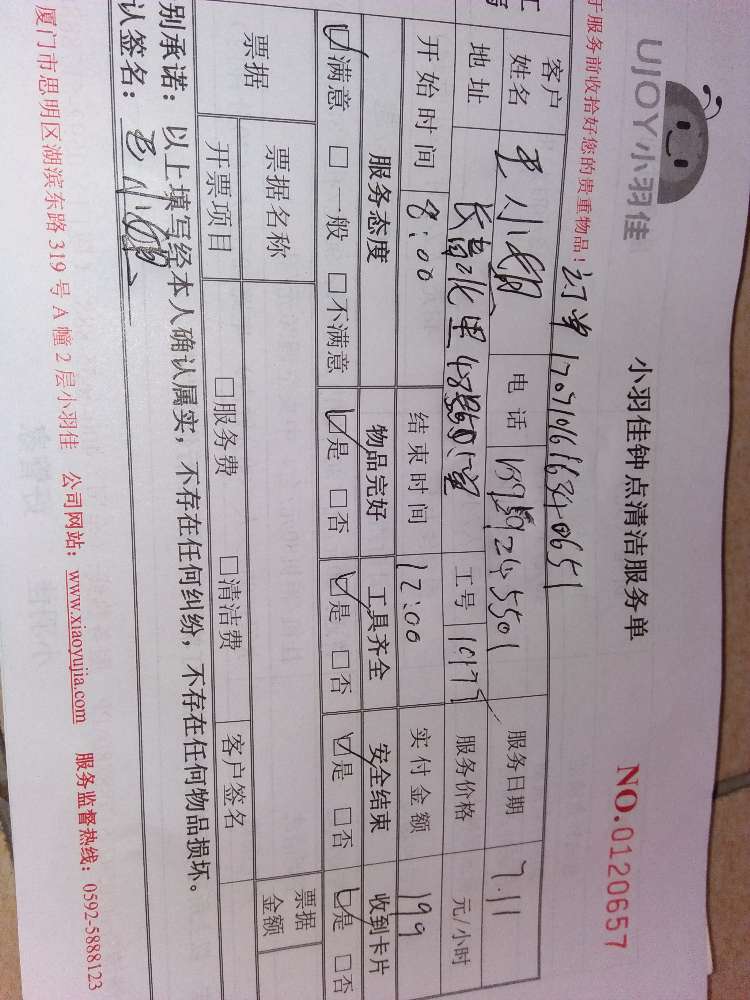 UJOY小羽佳
小羽佳钟点清洁服务单
NO.0120657
于服务前收拾好您的贵重物品！订单
客户姓名 小 电话 服务日期 7.11
地址 长青北里 工号 服务价格 元/小时
开始时间 8:00 结束时间 12:00 实付金额 199
服务态度 物品完好 工具齐全 安全结束 收到卡片
☑满意 □一般 □不满意 ☑是 □否 ☑是 □否 ☑是 □否 ☑是 □否
票据 票据名称 票据金额
开票项目 □服务费 □清洁费 客户签名
别承诺：以上填写经本人确认属实，不存在任何纠纷，不存在任何物品损坏。
认签名：
厦门市思明区湖滨东路 319 号 A 幢 2 层小羽佳 公司网站：www.xiaoyujia.com 服务监督热线：0592-5888123